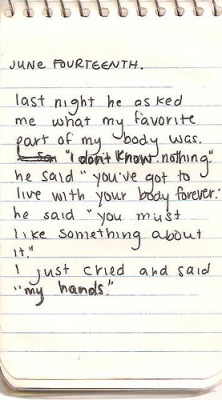 JUNE FOURTEENTH.
last night he asked
me what my favorite
part of my body was.
"I don't know nothing"
he said "you've got to
live with your body forever."
he said "you must
like something about
it."
I just cried and said
"my hands."